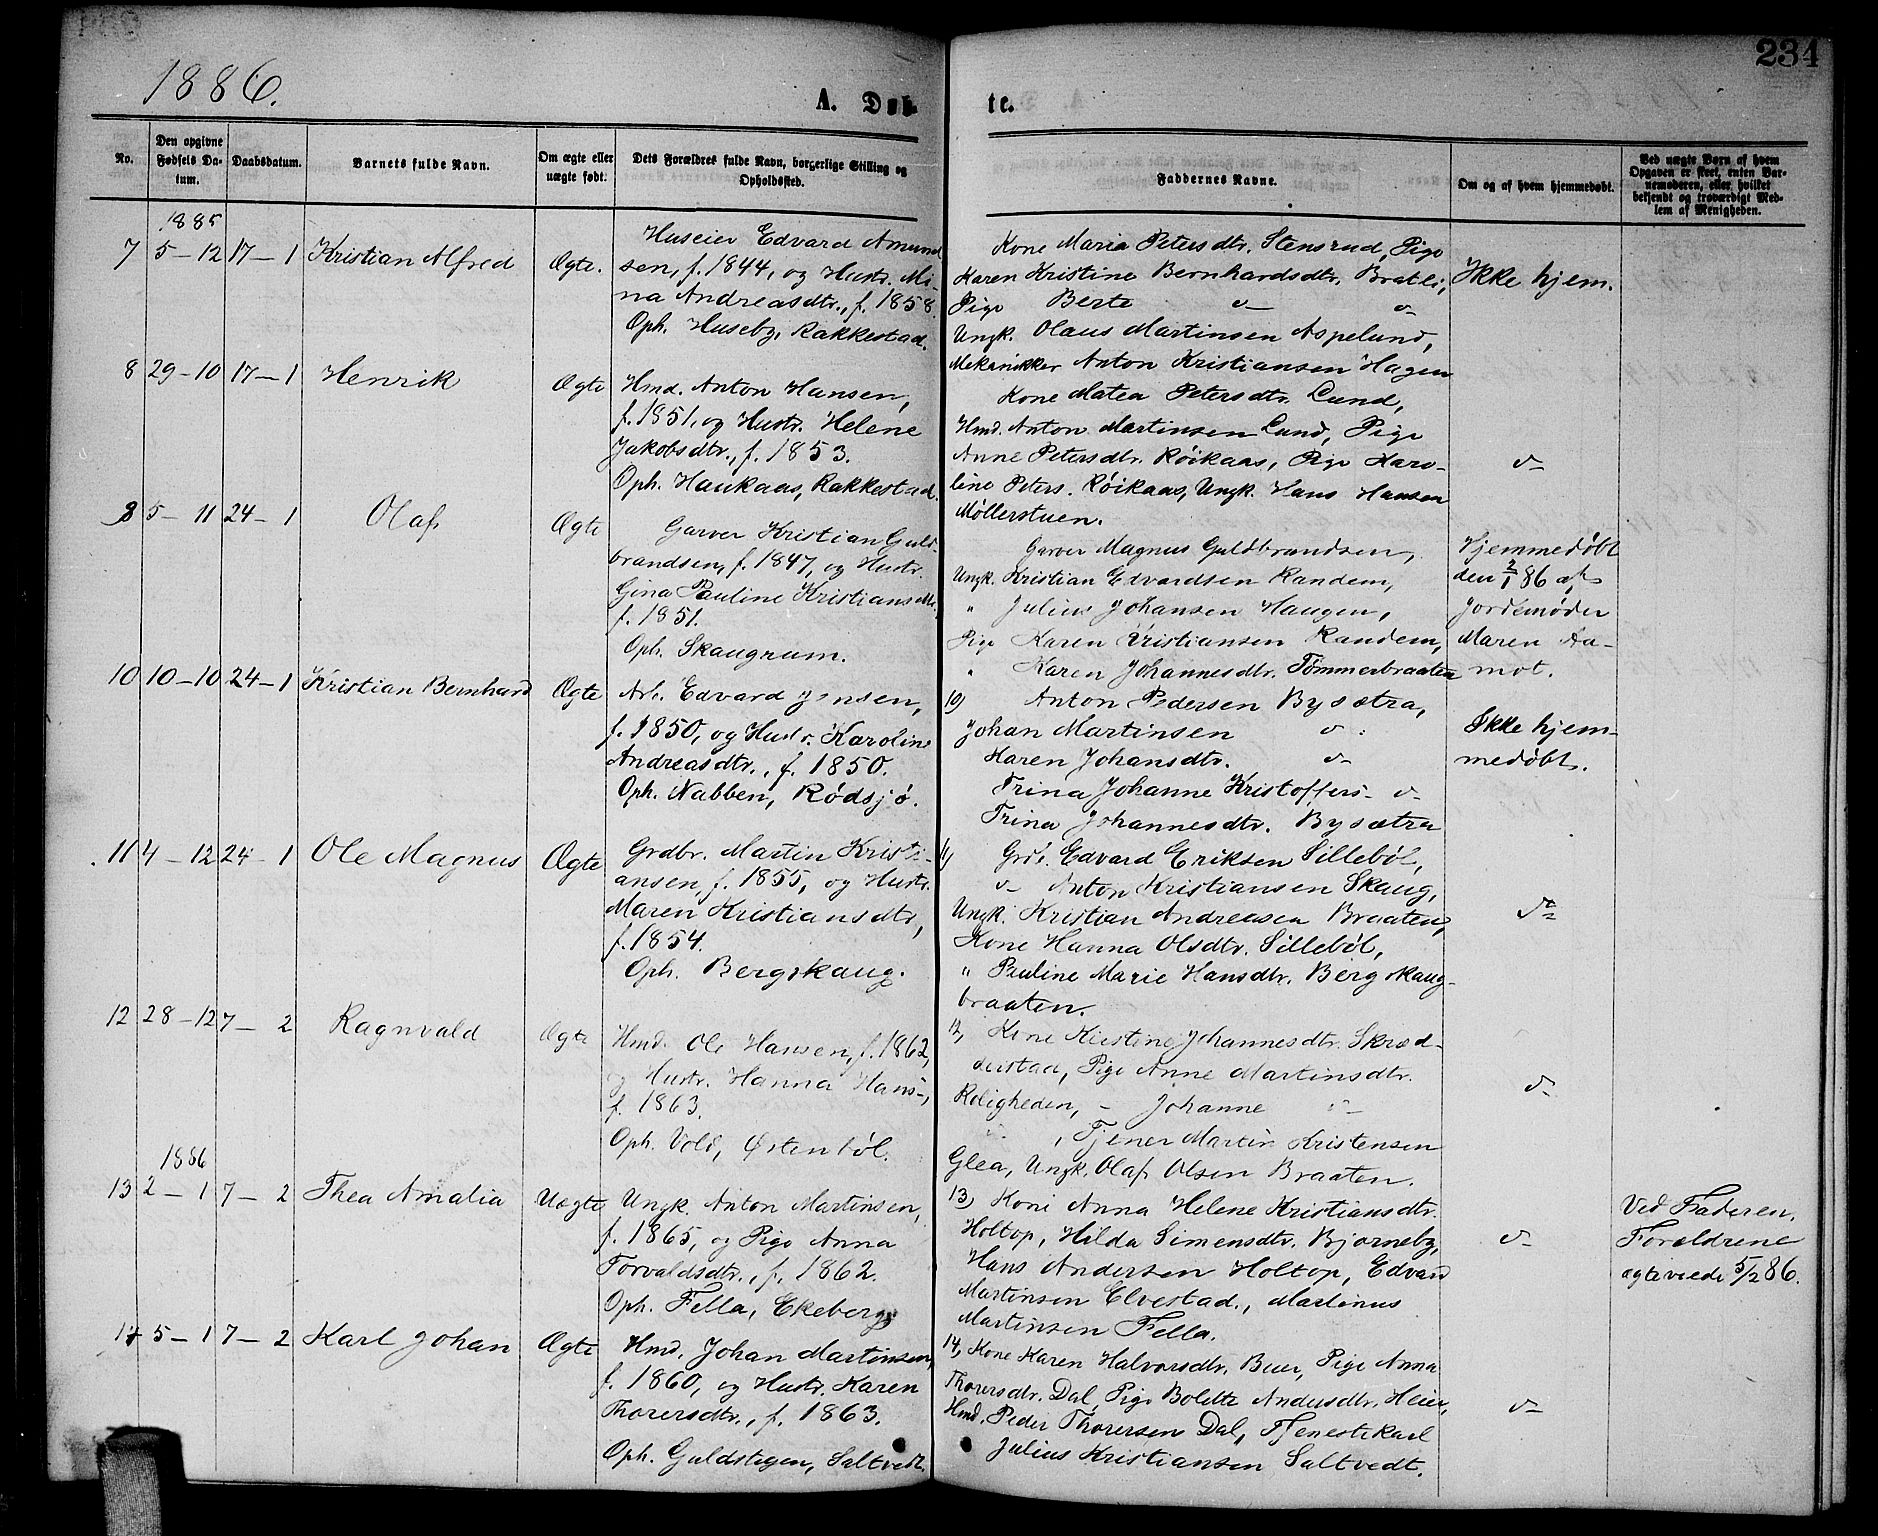 234
1886.
A. Døb-
te.
No.
Den opgivne Fødsels Da-tum.
Daabsdatum.
Barnets fulde Navn.
Om ægte eller uægte født.
Dets Forældres fulde Navn, borgerlige Stilling og Opholdssted.
Faddernes Navne.
Om og af hvem hjemmedøbt.
Ved uægte Børn af hvem Opgaven er skeet, enten Bar-nemoderen, eller hvilket bekjendt og troværdigt Med-lem af Menigheden.
1885
7 5-12 17-1 Kristian Alfred Ægte.
Huseier Edvard Amund
sen, f. 1844, og Hustr. Mi-
na Andreasdtr., f. 1858.
Oph. Huseby, Rakkestad.
Kone Maria Petersdtr. Stensrud, Pige
Karen Kristine Bernhardsdtr. Bratli,
Pige Berte d- d-
Ungk. Olaus Martinsen Aspelund,
Mekanikker Anton Kristiansen Hagen
Ikke hjem.
8 29-10 17-1 Henrik Ægte
Hmd. Anton Hansen,
f. 1851, og Hustr. Helene
Jakobsdtr., f. 1853.
Oph. Haukaas, Rakkestad.
Kone Matea Petersdtr. Lund,
Hmd. Anton Martinsen Lund, Pige
Anne Petersdtr. Røikaas, Pige Karo-
line Peters. Røikaas, Ungk. Hans Hansen
Møllerstuen.
d-
5-11 24-1 Olaf Ægte
Garver Kristian Guld-
brandsen, f. 1847, og Hustr.
Gina Pauline Kristians
f. 1851.
Oph. Skaugrum.
Garver Magnus Guldbrandsen,
Ungk. Kristian Edvardsen Randem,
" Julius Johansen Haugen,
Pige Karen Kristiansen Randem,
" Karen Johannesdtr. Tømmerbraaten
Hjemmedøbt
den 2/1 86 af
Jordemøder
Maren Aa-
mot.
10 10-10 24-1 Kristian Bernhard Ægte
Arb. Edvard Jensen,
f. 1850, og Hustr. Karoline
Andreasdtr., f. 1850.
Oph. Nabben, Rødsjø.
10) Anton Pedersen Bysætra,
Johan Martinsen d-
Karen Johansdtr. d-
Trina Johanne Kristoffers- d-
Trina Johannesdtr. Bysætra
Ikke hjem-
medøbt.
11 4-12 24-1 Ole Magnus Ægte
Grdbr. Martin Kristi-
ansen, f. 1855, og Hustr.
Maren Kristiansdtr,
f. 1854.
Oph. Bergskaug.
11) Grdb. Edvard Eriksen Sillebøl,
d- Anton Kristiansen Skaug,
Ungk. Kristian Andreasen Braaten,
Kone Hanna Olsdtr. Sillebøl,
" Pauline Marie Hansdtr. Bergskaug-
braaten.
d-
12 28-12 7-2 Ragnvald Ægte
Hmd. Ole Hansen, f. 1862,
og Hustr. Hanna Hans-,
f. 1863.
Oph. Vold, Østenbøl.
12, Kone Kristine Johannesdtr. Skræd-
derstad, Pige Anne Martinsdtr.
Roligheden, - Johanne d-
, Tjener Martin Kristensen
Glea, Ungk. Olaf Olsen Braaten.
d-
1886
13 2-1 7-2 Thea Amalia Uægte
Ungk. Anton Martinsen,
f. 1865, og Pige Anna
Torvaldsdtr., f. 1862.
Oph. Fella, Ekeberg.
13, Kone Anna Helene Kristiansdtr.
Holtop, Hilda Simensdtr. Bjørneby,
Hans Andersen Holtop, Edvard
Martinsen Elvestad., Martinus
Martinsen Fella.
d-
Ved Faderen.
Forældrene
ægteviede 5/2 86.
14 5-1 7-2 Karl Johan Ægte
Hmd. Johan Martinsen,
f. 1860, og Hustr. Karen
Thorersdtr., f. 1863.
Oph. Guldstigen, Saltvedt.
14, Kone Karen Halvorsdtr. Buer, Pige Anna
Thorersdtr. Dal, Pige Bolette Andersdtr. Heier,
Hmd. Peder Thorersen Dal, Tjenestekarl
Julius Kristiansen Saltvedt.
d-